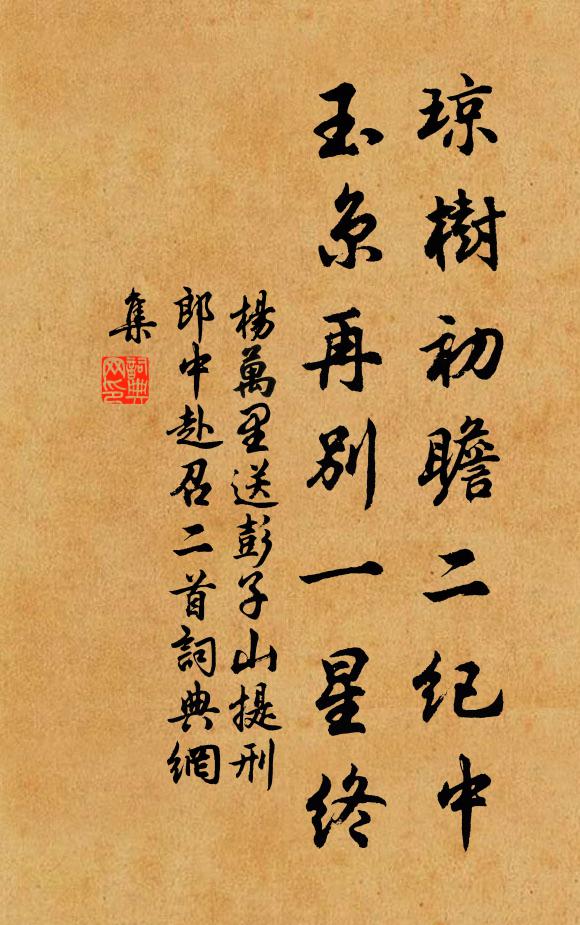 琼樹初瞻二紀中
玉京再別一星終
楊萬里送彭子山提刑
郎中赴召二首詞典網
集
詞典
网印